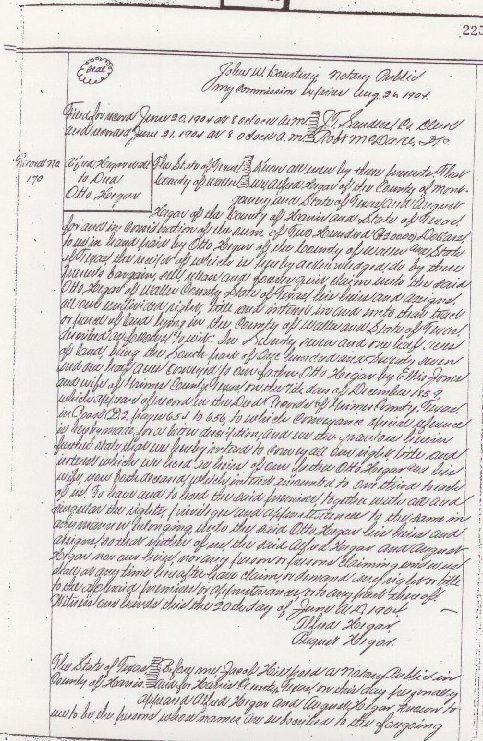 225
Seal
John W. Courtney Notary Public
My commission expires Aug. 26 1904.
Filed for record June 20, 1904 at 8 oclock a.m.
and record June 21, 1904 at 8 oclock a.m.
170
Alfred Hegar et al
to Deed
Otto Hegar
The State of Texas Know all men by these presents That
County of Waller we Alfred Hegar of the County of Mont-
gomery and State of Texas and August
Hegar of the County of Harris and State of Texas
for and in consideration of the sum of Two Hundred Dollars
to us in hand paid by Otto Hegar of the County of Waller and State
of Texas the receipt of which is hereby acknowledged do by these
presents bargain, sell, release and forever quit claim unto the said
Otto Hegar of Waller County State of Texas his heirs and assigns
all our undivided right, title and interest in and unto that tract
or parcel of land lying in the County of Waller and State of Texas
described as follows, to wit: seven and one half acres
of land, being the South part of One hundred and seventy seven
and one half acres conveyed to our father Otto Hegar by Ellis Jones
and wife of Grimes County Texas on the 7th day of December 1859,
which appears of record in the Deed Records of Grimes County, Texas
in Book pages 654 to 656, to which conveyance reference
is hereby made for a better description, and we the grantors herein
further state that we hereby intend to convey all our right title and
interest which we have as heirs of our father Otto Hegar and his
wife, now both deceased, which interest amounts to one third to each
of us. To have and to hold the said premises, together with all and
singular the rights, privileges and appurtenances to the same in
any manner belonging unto the said Otto Hegar his heirs and
assigns, so that neither of us the said Alfred Hegar and August
Hegar nor our heirs, nor any person or persons claiming under us
shall at any time hereafter have claim or demand any right or title
to the aforesaid premises or appurtenances or to any part thereof.
Witness our hands this the 20th day of June A.D. 1904
Alfred Hegar.
August Hegar.
The State of Texas Before me, a Notary Public in
County of Harris and for Harris County Texas on this day personally
appeared Alfred Hegar and August Hegar, known to
me to be the persons whose names are subscribed to the foregoing